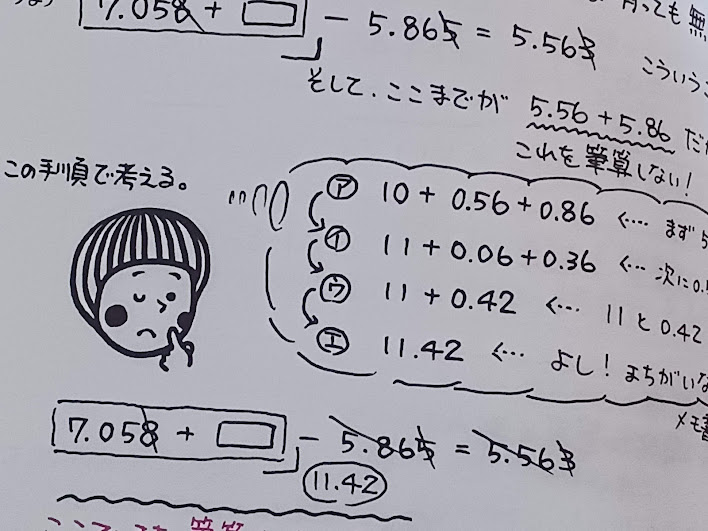 7.058 + □ - 5.865 = 5.563
こういう
そして、ここまでが 5.56 + 5.86 だ
これを筆算しない!
この手順で考える。
㋐ 10 + 0.56 + 0.86 <… まず 5
㋑ 11 + 0.06 + 0.36 <… 次に 0.5
㋒ 11 + 0.42 <… 11 と 0.42
㋓ 11.42 <… よし! まちがいな
メモ書
7.058 + □ - 5.865 = 5.563
11.42